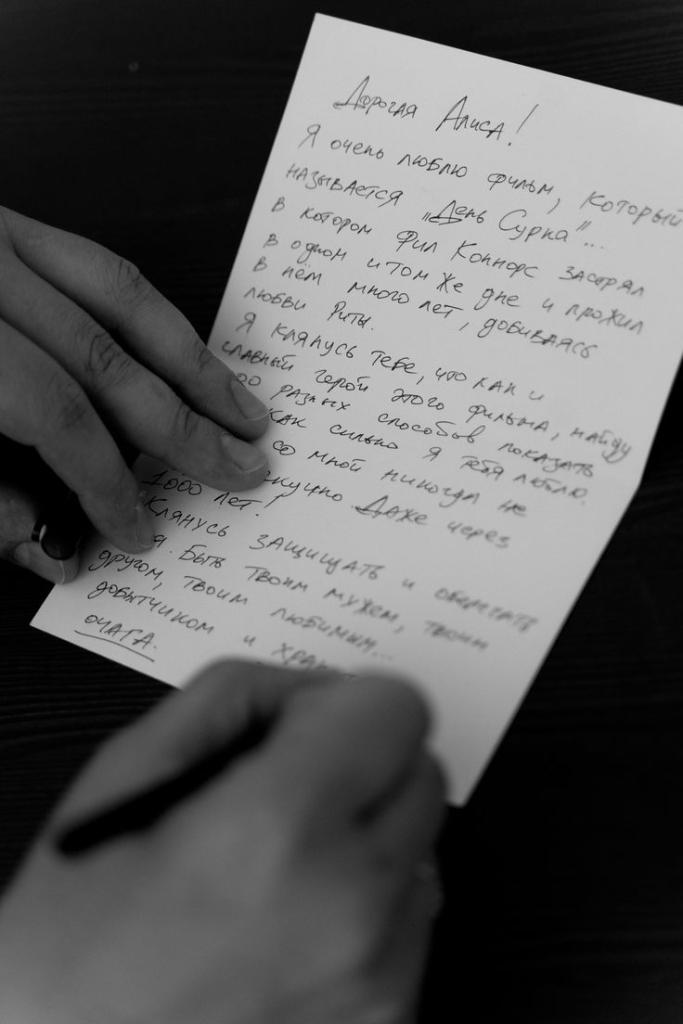 Дорогая Алиса!
Я очень люблю фильм, который
называется "День Сурка"...
в котором Фил Коннорс застрял
в одном и том же дне и прожил
в нём много лет, добиваясь
любви Риты.
Я клянусь тебе, что как и
главный герой этого фильма, найду
разных способов показать
как сильно я тебя люблю.
со мной никогда не
скучно даже через
1000 лет!
Клянусь защищать и оберегать
Быть твоим мужем, твоим
другом, твоим любимым...
добытчиком и
очага.